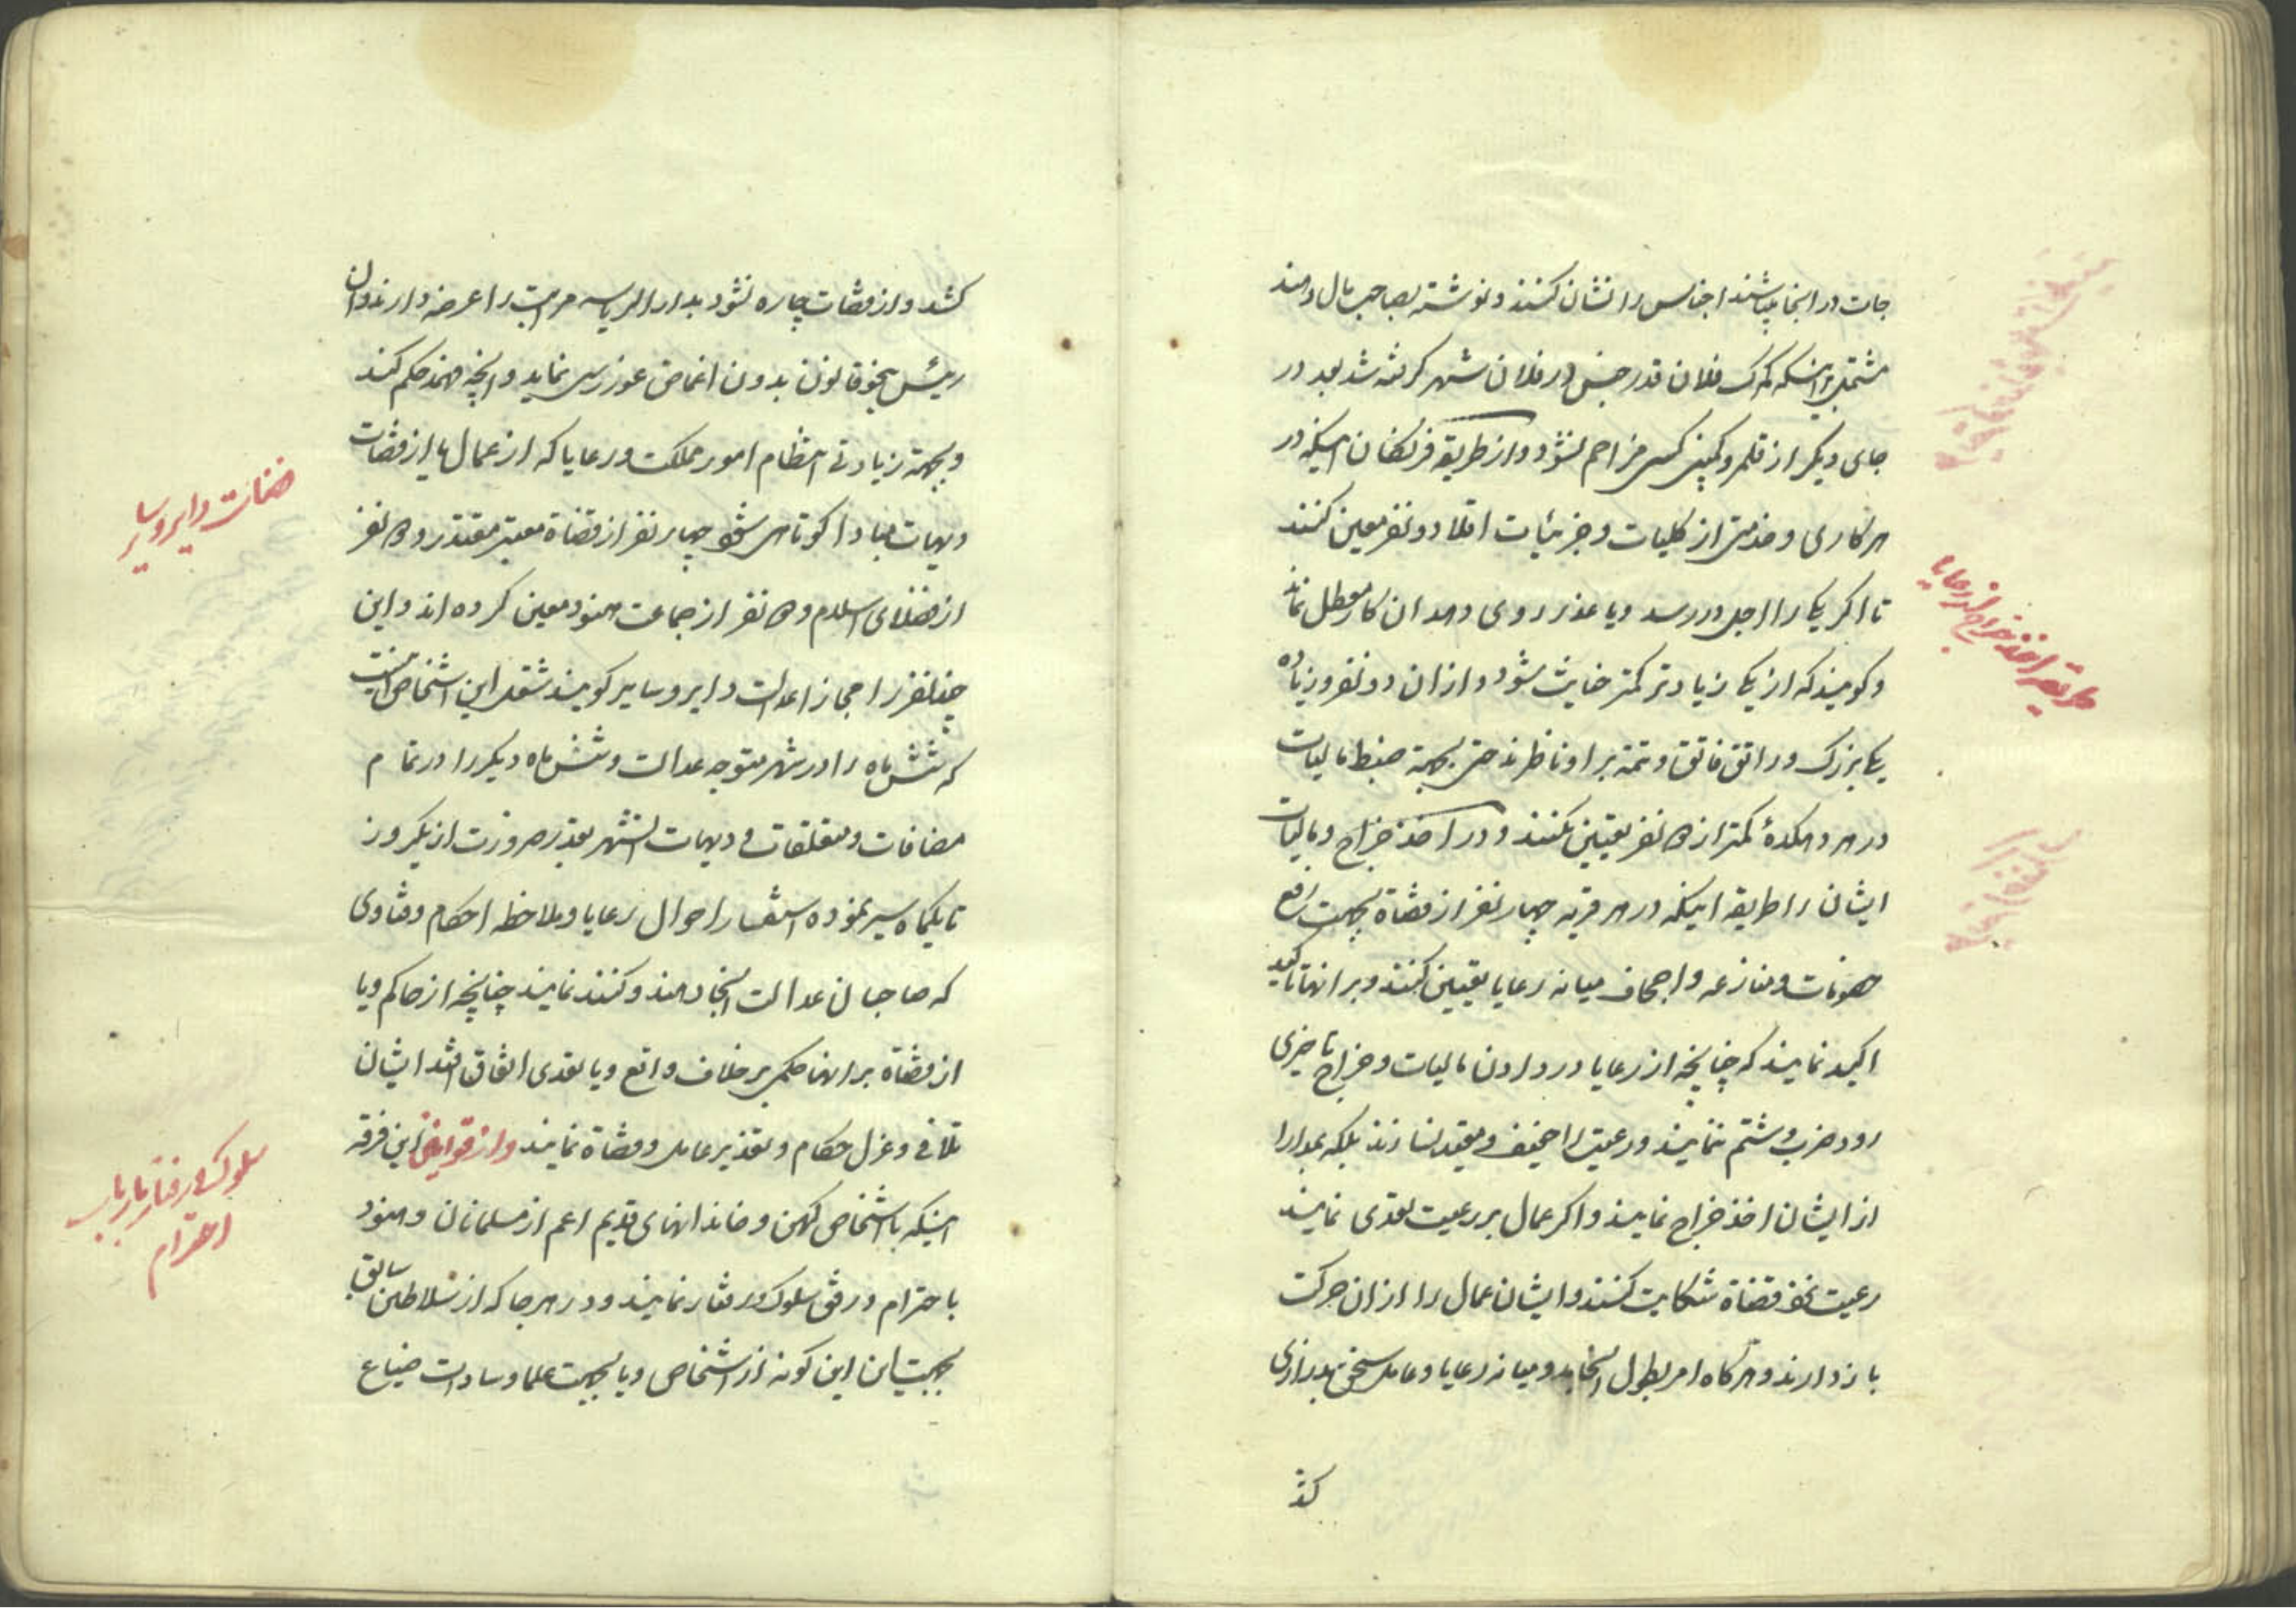 جات در انجا میباشند اجناس را نشان کنند و نوشته بصاحب مال دهند
مشتمل بر اینکه کمرک فلان قدر جنس در فلان شهر کرفته شد بعد در
جای دیگر از قلمرو کمپنی کسی مزاحم نشود و از طریقه فرنکیان اینکه در
هر کاری و خدمتی از کلیات و جزئیات اقلا دو نفر معین کنند
تا اکر یکی را اجل در رسد و یا عذر روی دهد ان کار معطل نماند
و کویند که از یکی زیادتر کمتر خیانت شود و از ان دو نفر و زیاده
یکی بزرک و راتق فاتق و تتمه بر او ناظرند حتی بجهة ضبط مالیات
در هر دهکدهٔ کمتر از ده نفر تعیین نکنند و در اخذ خراج و مالیات
ایشان را طریقه اینکه در هر قریه چهار نفر از قضاة بجهت رفع
خصومات و منازعه و اجحاف میانه رعایا تعیین کنند و بر انها تاکید
اکید نمایند که چنانچه از رعایا در دادن مالیات و خراج تاخیری
رود ضرب و شتم ننمایند و رعیت را خفیف و مقید نسازند بلکه بمدارا
از ایشان اخذ خراج نمایند و اکر عمال بر رعیت تعدی نمایند
رعیت نزد قضاة شکایت کنند و ایشان عمال را از ان حرکت
باز دارند و هر کاه امر بطول انجامد و میانه رعایا و عامل سخن بدرازی
کشد
طریقه اخذ خراج از رعایا
کشد و از قضات چاره نشود بدار الریاسه مراتب را عرضه دارند و ان
رئیس بنحو قانون بدون اغماض غوررسی نماید و انچه فهمد حکم کند
و بجهة زیادتی انتظام امور مملکت و رعایا که از عمال یا از قضات
دیهات مبادا کوتاهی شود چهار نفر از قضاة معتبر مقتدر و ده نفر
از فضلای اسلام و ده نفر از جماعت هنود معین کرده اند و این
چند نفر را مجاز اعدالت دایر و سایر کویند شغل این اشخاص اینست
که شش ماه را در شهر متوجه عدالت و شش ماه دیکر را در تمام
مضافات و متعلقات و دیهات انشهر بقدر ضرورت از یکروز
تا یکماه سیر نموده استفسار احوال رعایا و ملاحظه احکام و فتاوی
که صاحبان عدالت انجا دهند و کنند نمایند چنانچه از حاکم و یا
از قضاة بر انها حکمی بر خلاف واقع و یا تعدی اتفاق افتد ایشان
تلافی و عزل حکام و تعذیر عامل و قضاة نمایند و از قوانین این فرقه
اینکه با اشخاص کهن و خاندانهای قدیم اعم از مسلمانان و هنود
با احترام و رفق سلوک و رفتار نمایند و در هر جا که از سلاطین سابق
بجهت این کونه از اشخاص و یا بجهت علما و سادات ضیاع
دایر و سایر
سلوک و رفتار با ارباب
احترام